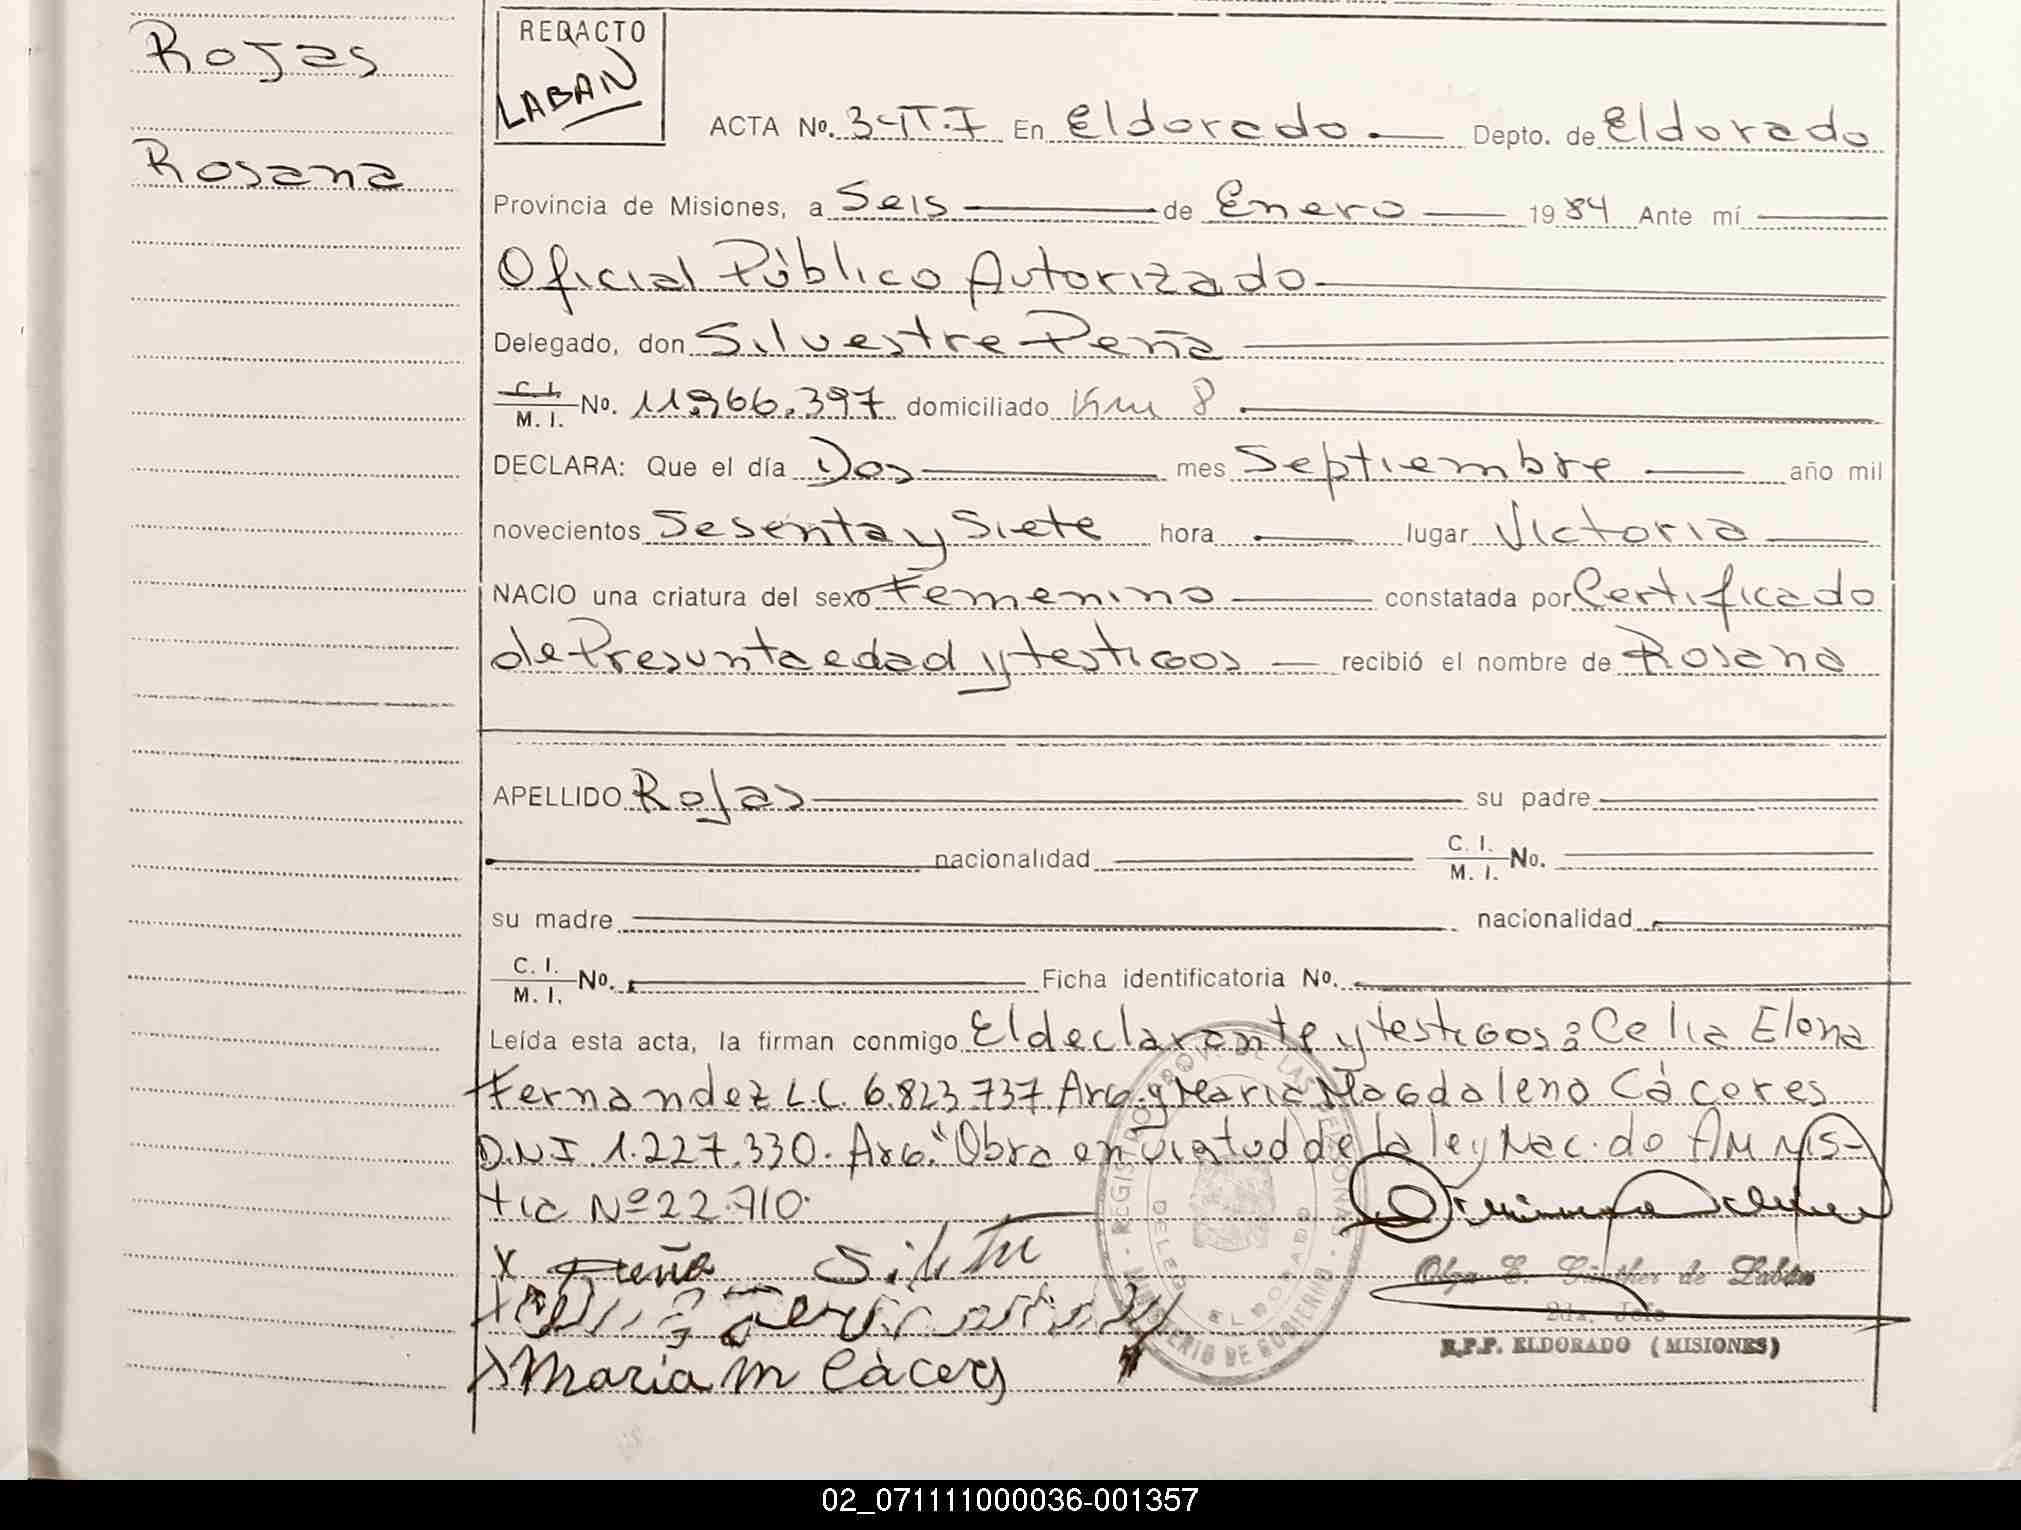 Rojas
Rosana
REDACTO
LABAN
ACTA No. 34T.I En Eldorado Depto. de Eldorado
Provincia de Misiones, a Seis de Enero 1984 Ante mí
Oficial Público Autorizado
Delegado, don Silvestre Peña
C. I.
M. I. No. 11.966.397 domiciliado Km 8
DECLARA: Que el día Dos mes Septiembre año mil
novecientos Sesenta y Siete hora lugar Victoria
NACIO una criatura del sexo Femenino constatada por Certificado
de Presunta edad y testigos recibió el nombre de Rosana
APELLIDO Rojas su padre
nacionalidad C. I.
M. I. No.
su madre nacionalidad
C. I.
M. I. No. Ficha identificatoria No.
Leída esta acta, la firman conmigo El declarante y testigos: Celia Elena
Fernandez L.C. 6.823.737. Arg. y Maria Magdalena Cáceres
D.N.I. 1.227.330. Arg. "Obra en Virtud de la ley Nac. de Amnis-
tia Nº 22.710.
x Peña
Maria M Cáceres
Olga E. Günther de Labán
2da. Jefe
R.P.P. ELDORADO (MISIONES)
MINISTERIO DE GOBIERNO
ELDORADO
02_071111000036-001357